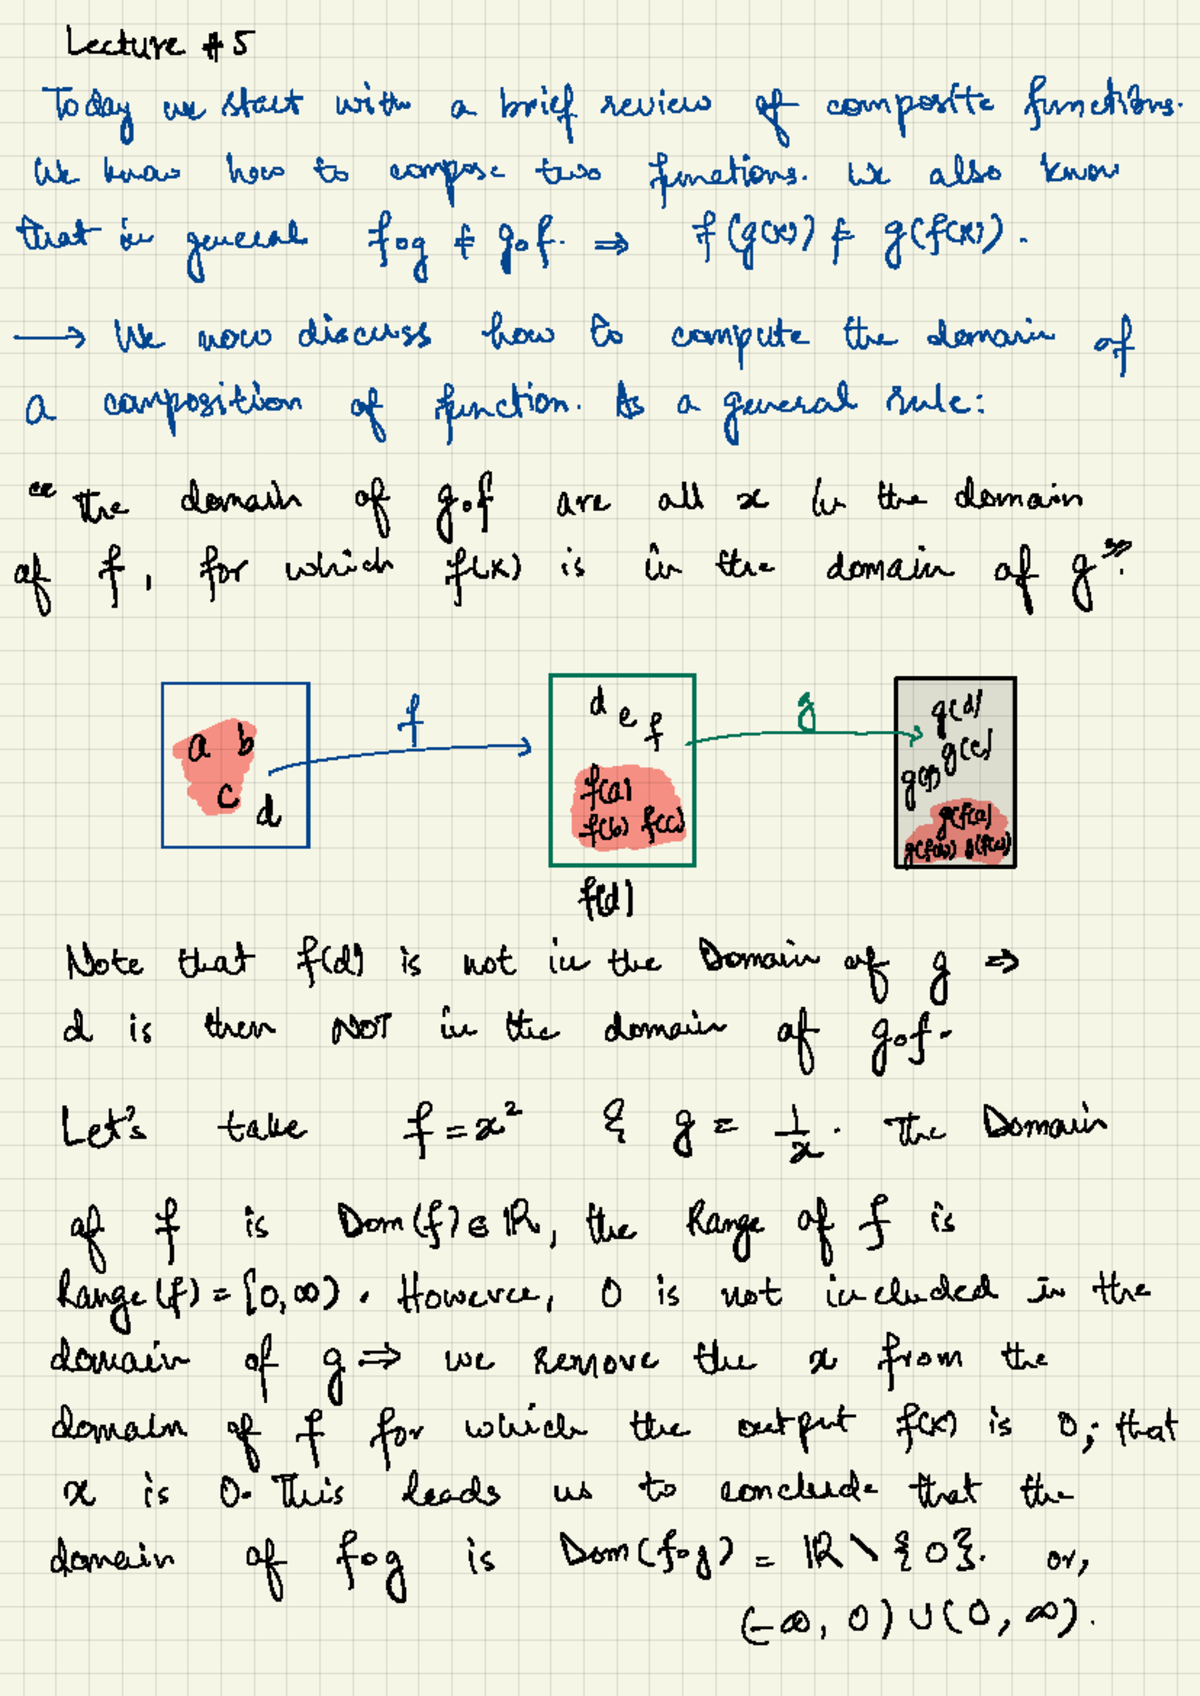 Lecture #5
Today we start with a brief review of composite functions.
We know how to compose two functions. We also know
that in general fog ≠ gof. ⇒ f(g(x)) ≠ g(f(x)).
→ We now discuss how to compute the domain of
a composition of function. As a general rule:
"The domain of gof are all x in the domain
of f, for which f(x) is in the domain of g".
f
g
a b
c
d
d e f
f(a)
f(b) f(c)
f(d)
g(d)
g(e)
g(f)
g(f(a))
g(f(b)) g(f(c))
Note that f(d) is not in the Domain of g ⇒
d is then NOT in the domain of gof.
Let's take f = x² & g = 1/x. The Domain
of f is Dom(f) ∈ ℝ, the Range of f is
Range(f) = [0, ∞). However, 0 is not included in the
domain of g ⇒ we remove the x from the
domain of f for which the output f(x) is 0; that
x is 0. This leads us to conclude that the
domain of fog is Dom(fog) = ℝ \ {0}. or,
(-∞, 0) ∪ (0, ∞).